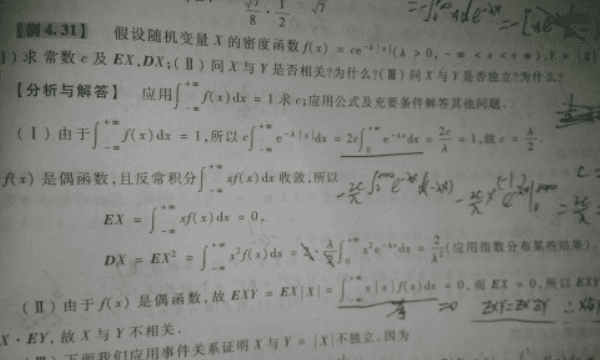 【例 4.31】 假设随机变量 X 的密度函数 f(x) = ce^{-λ|x|} (λ > 0, -∞ < x < +∞), Y = |X|
) 求常数 c 及 EX, DX; (Ⅱ) 问 X 与 Y 是否相关?为什么? (Ⅲ) 问 X 与 Y 是否独立?为什么?
【分析与解答】 应用∫_{-∞}^{+∞} f(x)dx = 1 求 c; 应用公式及充要条件解答其他问题.
(Ⅰ) 由于∫_{-∞}^{+∞} f(x)dx = 1, 所以 c∫_{-∞}^{+∞} e^{-λ|x|}dx = 2c∫_{0}^{+∞} e^{-λx}dx = 2c/λ = 1, 故 c = λ/2.
f(x) 是偶函数, 且反常积分∫_{-∞}^{+∞} xf(x)dx 收敛, 所以
EX = ∫_{-∞}^{+∞} xf(x)dx = 0,
DX = EX² = ∫_{-∞}^{+∞} x²f(x)dx = 2·λ/2∫_{0}^{+∞} x²e^{-λx}dx = 2/λ² (应用指数分布某些结果).
(Ⅱ) 由于 f(x) 是偶函数, 故 EXY = EX|X| = ∫_{-∞}^{+∞} x|x|f(x)dx = 0, 而 EX = 0, 所以 EXY
=0 EXY=EXEY
X·EY, 故 X 与 Y 不相关.
下面我们应用事件关系证明 X 与 Y = |X| 不独立. 因为